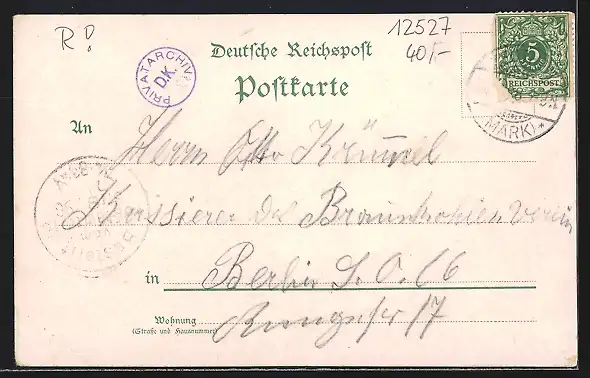 R?
12527
40/-
PRIVATARCHIV D.K.
Deutsche Reichspost
Postkarte
5
REICHSPOST
(MARK)
An Herrn Otto Krümmel
Kassierer des Braunkohlen Verein
in Berlin S.O. 16
Wohnung 17
(Straße und Hausnummer)